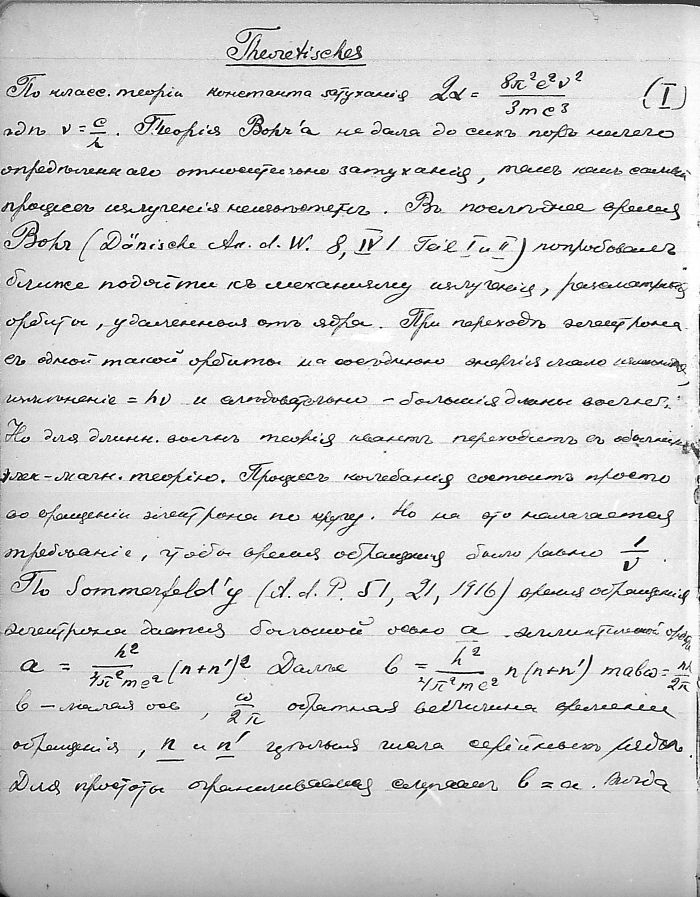 Theoretisches
По класс. теоріи константа затуханія 2α = 8π²e²ν² / 3mc³ (I)
гдѣ ν = c/λ. Теорія Bohr'а не дала до сихъ поръ ничего
опредѣленнаго относительно затуханія, такъ какъ самый
процессъ излученія неизвѣстенъ. Въ послѣднее время
Bohr (Dänische Ak. d. W. 8, IV 1 Teil I и II) попробовалъ
ближе подойти къ механизму излученія, разсматривая
орбиты, удаленныя отъ ядра. При переходѣ электрона
съ одной такой орбиты на сосѣднюю энергія мало измѣняется,
измѣненіе = hν и слѣдовательно – большія длины волнъ.
Но для длинн. волнъ теорія квантъ переходитъ въ обычную
элек-магн. теорію. Процессъ колебанія состоитъ просто
во вращеніи электрона по кругу. Но на это налагается
требованіе, чтобы время обращенія было равно 1/ν
По Sommerfeld'у (A. d. P. 51, 21, 1916) время обращенія
электрона дается большой осью a эллиптической орбиты
a = h² / 4π²me² (n+n')² Далѣе b = h² / 4π²me² n(n+n') mabω = nh / 2π
b – малая ось, ω/2π обратная величина времени
обращенія, n и n' цѣлыя числа серійныхъ рядовъ.
Для простоты ограничиваемся случаемъ b = a. Тогда